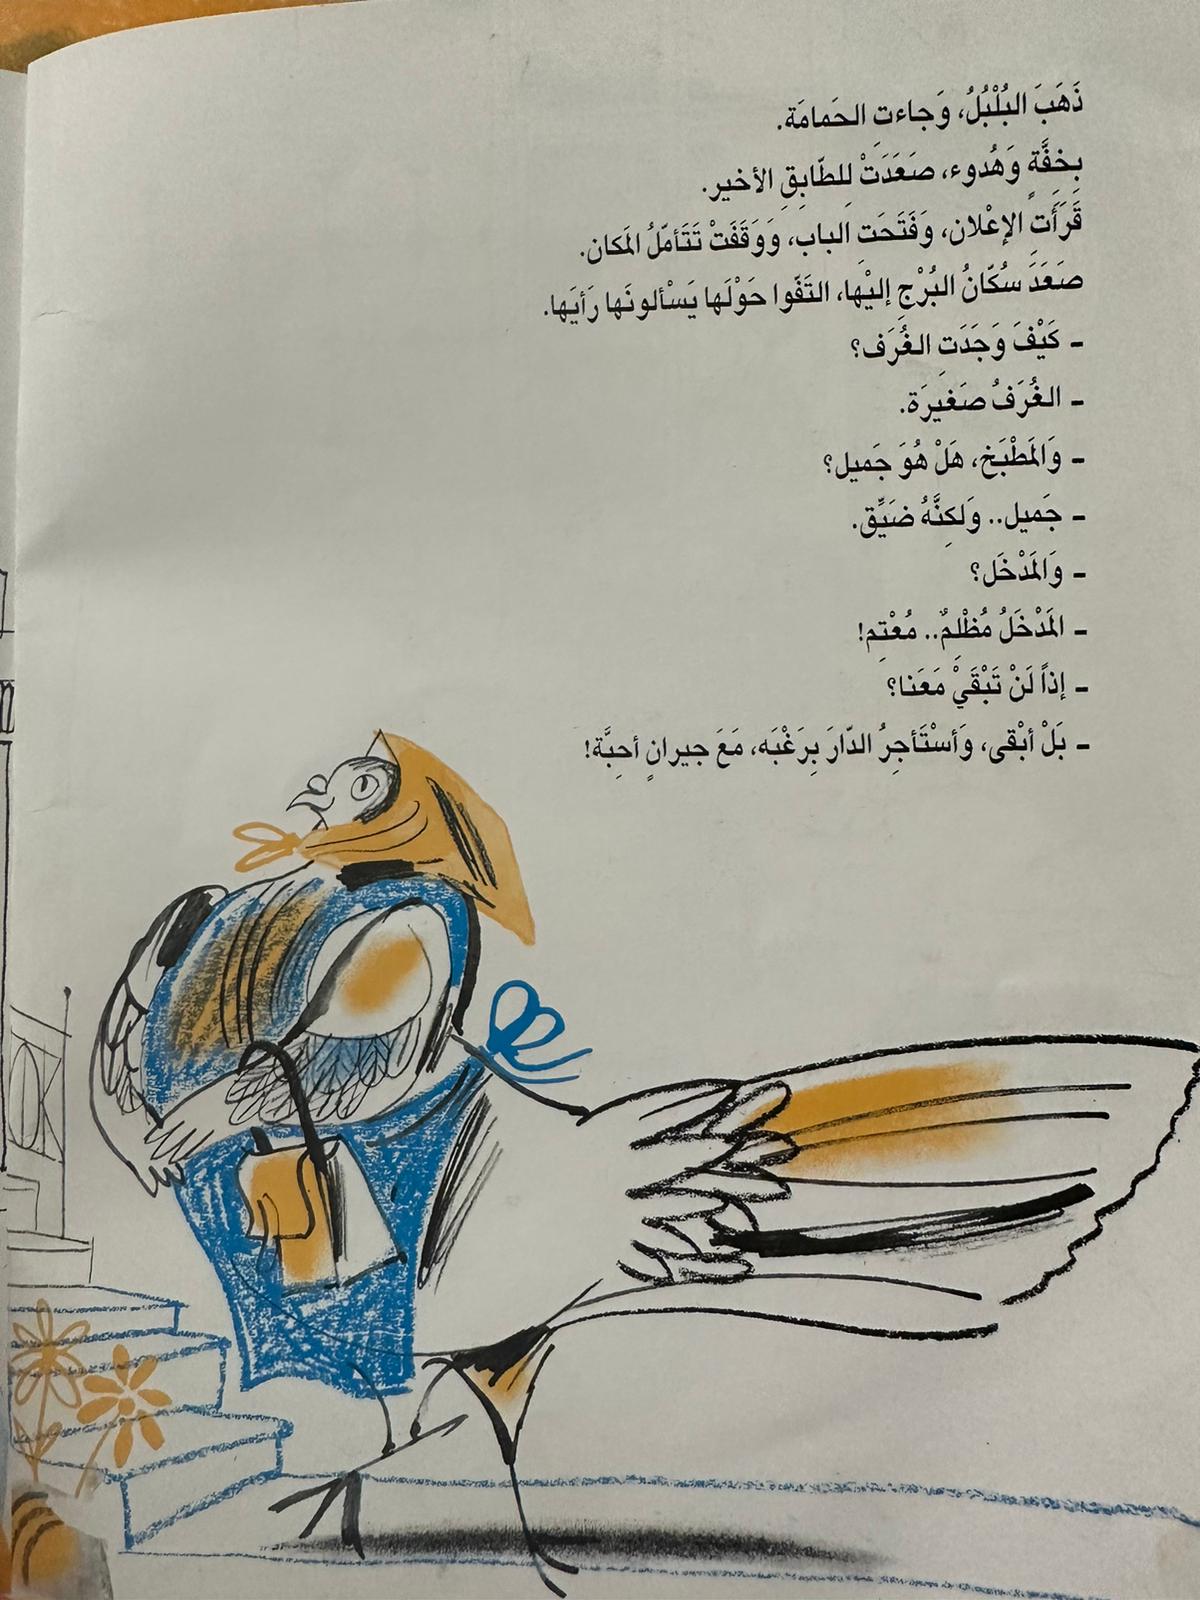 ذَهَبَ البُلْبُلُ، وَجاءتِ الحَمامَة.
بِخِفَّةٍ وَهُدوء، صَعَدَتْ لِلطّابِقِ الأخير.
قَرَأَتِ الإعْلان، وَفَتَحَتِ الباب، وَوَقَفَتْ تَتَأمّلُ المَكان.
صَعَدَ سُكّانُ البُرْجِ إليْها، التَفّوا حَوْلَها يَسْألونَها رَأيَها.
- كَيْفَ وَجَدَتِ الغُرَف؟
- الغُرَفُ صَغيرَة.
- وَالمَطْبَخ، هَلْ هُوَ جَميل؟
- جَميل.. وَلكِنَّهُ ضَيِّق.
- وَالمَدْخَل؟
- المَدْخَلُ مُظْلِمٌ.. مُعْتِم!
- إذاً لَنْ تَبْقَيْ مَعَنا؟
- بَلْ أبْقى، وَأسْتَأجِرُ الدّارَ بِرَغْبَه، مَعَ جيرانٍ أحِبَّة!